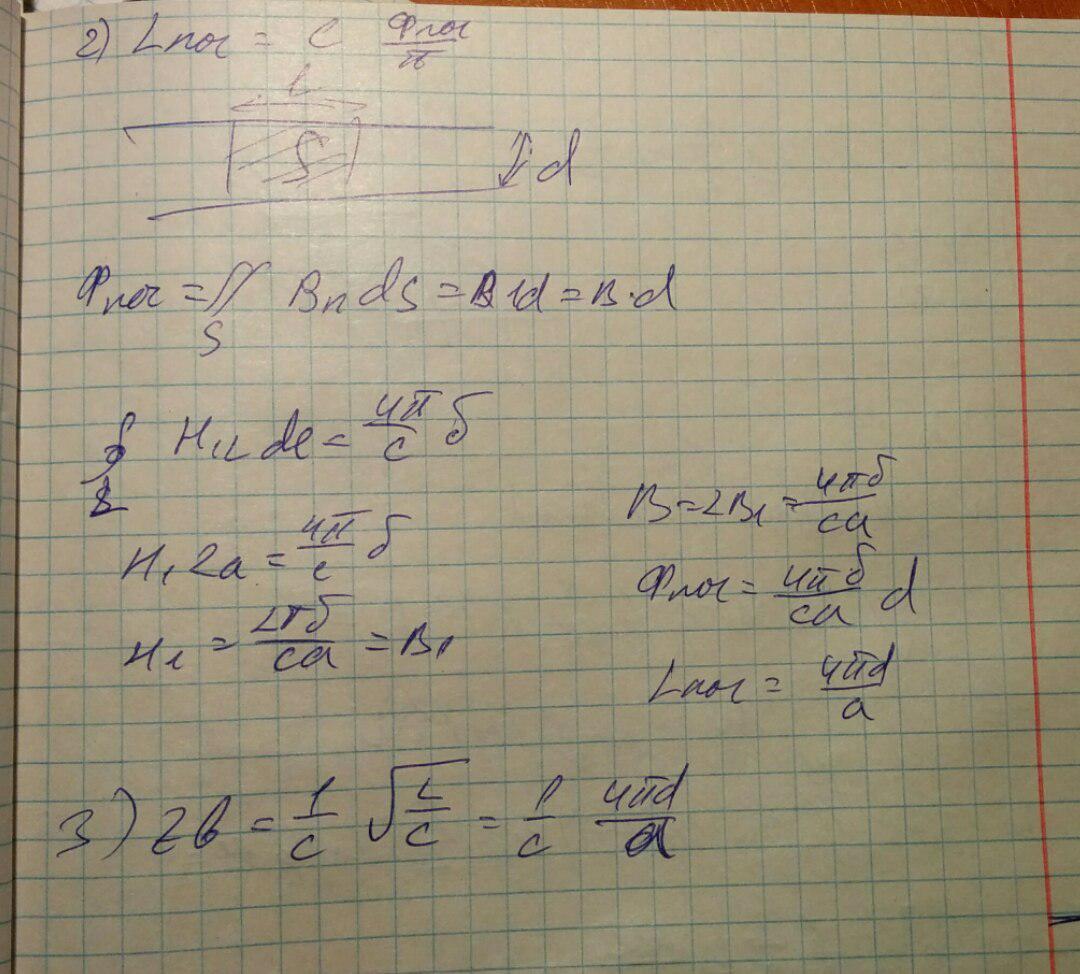 2) Lпог = c Фпог/π
l
S d
Фпог = ∬ Bn dS = B1d = B·d
S
∮ H₁L dl = 4π/c б
L
H₁2a = 4π/c б
H₁ = 2πб/ca = B₁
B = 2B₁ = 4πб/ca
Фпог = 4πб/ca d
Lпог = 4πd/a
3) Zв = 1/c √(L/C) = 1/c 4πd/a